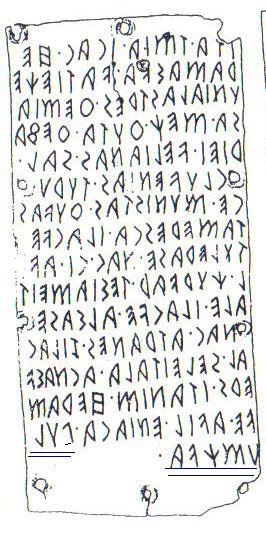 𐌉𐌕𐌀·𐌕𐌌𐌉𐌀·𐌉𐌂𐌀𐌂·𐌇𐌄
𐌓𐌀𐌌𐌀𐌑𐌅𐌀·𐌅𐌀𐌕𐌉𐌄𐌙𐌄
𐌖𐌍𐌉𐌀𐌋𐌀𐌔𐌕𐌓𐌄𐌔·𐌈𐌄𐌌𐌉𐌀
𐌔𐌀·𐌌𐌄𐌙·𐌈𐌖𐌕𐌀·𐌈𐌄𐌚𐌀
𐌓𐌉𐌄𐌉·𐌅𐌄𐌋𐌉𐌀𐌍𐌀𐌔·𐌔𐌀𐌋·
𐌂𐌋𐌖𐌅𐌄𐌍𐌉𐌀𐌔·𐌕𐌖𐌓𐌖
𐌂𐌄·𐌌𐌖𐌍𐌉𐌔𐌕𐌀𐌔·𐌈𐌖𐌅𐌀𐌔
𐌕𐌀𐌌𐌄𐌓𐌄𐌔𐌂𐌀·𐌉𐌋𐌀𐌂𐌅𐌄
𐌕𐌖𐌋𐌄𐌓𐌀𐌔𐌄·𐌍𐌀𐌂·𐌂𐌉·𐌀𐌅𐌉
𐌋·𐌙𐌖𐌓𐌅𐌀𐌓·𐌕𐌄𐌔𐌉𐌀𐌌𐌄𐌉𐌕
𐌀𐌋𐌄·𐌉𐌋𐌀𐌂𐌅𐌄·𐌀𐌋𐌑𐌀𐌔𐌄
𐌍𐌀𐌂·𐌀𐌕𐌓𐌀𐌍𐌄𐌔·𐌆𐌉𐌋𐌀𐌂
𐌀𐌋·𐌔𐌄𐌋𐌄𐌉𐌕𐌀𐌋𐌀·𐌀𐌂𐌍𐌀𐌑𐌅
𐌄𐌓𐌔·𐌉𐌕𐌀𐌍𐌉𐌌·𐌇𐌄𐌓𐌀𐌌
𐌅𐌄·𐌀𐌅𐌉𐌋·𐌄𐌍𐌉𐌀𐌂𐌀·𐌐𐌖𐌋
𐌖𐌌𐌙𐌅𐌀·